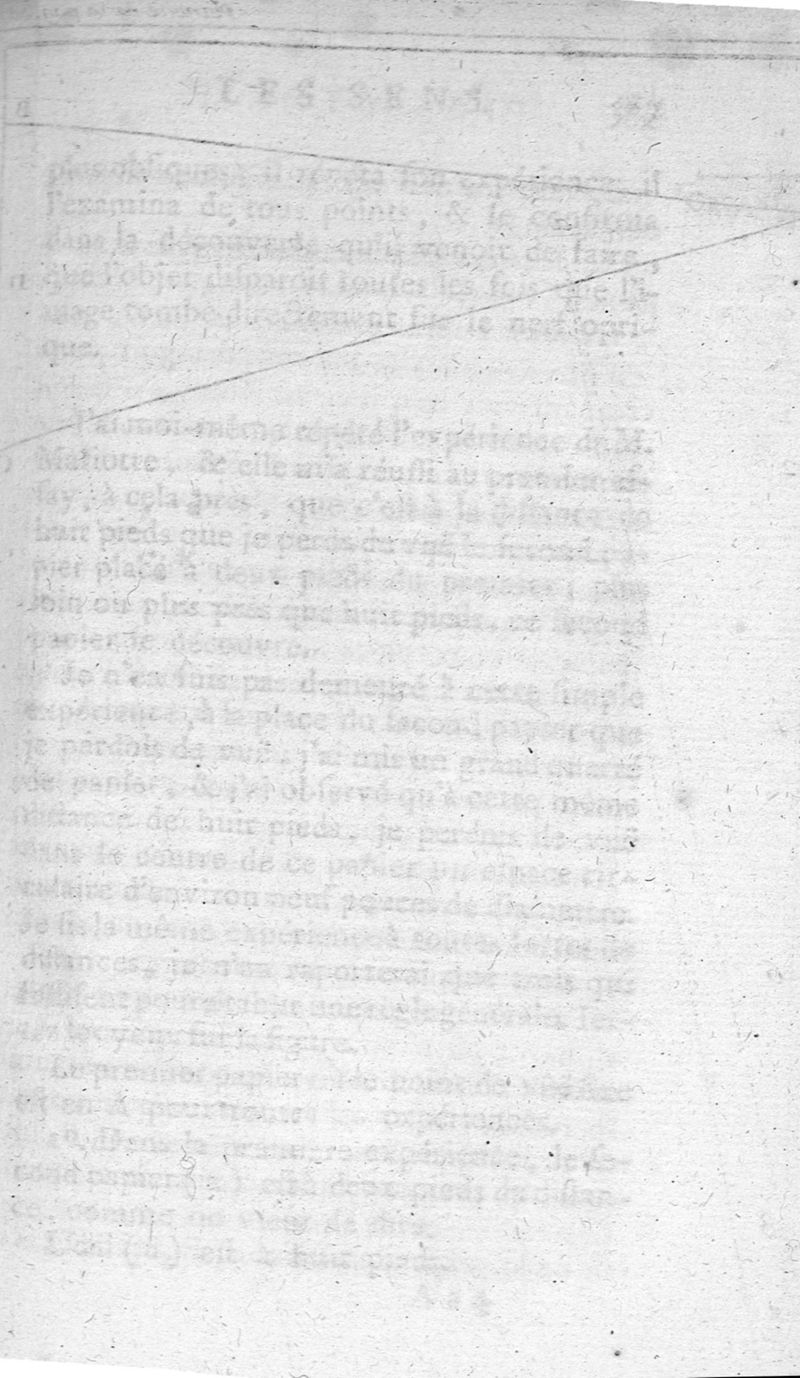 LES SENS.
plus obliques; il répéta son expérience, il
l'examina de tous points, & se confirma
dans la découverte qu'il venoit de faire,
que l'objet disparoît toutes les fois que l'i-
mage tombe directement sur le nerf opti-
que.
J'ai moi-même répété l'expérience de M.
Mariotte, & elle m'a réussi au premier es-
say, à cela près, que c'est à la distance de
huit pieds que je perds de vuë le second pa-
pier placé à deux pieds du premier; plus
loin ou plus près que huit pieds, ce second
papier se découvre.
Je n'en suis pas demeuré à cette simple
expérience, à la place du second papier que
je perdois de vuë, j'ai mis un grand quarré
de papier, & j'ai observé qu'à cette même
distance de huit pieds, je perdois de vuë
dans le centre de ce papier un espace cir-
culaire d'environ neuf pouces de diametre.
Je fis la même expérience à toutes sortes de
distances, je n'en raporterai que trois qui
suffisent pour établir une régle générale.
les voyent sur la figure.
Le premier papier, le point de vuë fixe
est en A pour toutes expériences.
1°. Dans la premiere expérience, le se-
cond papier est à deux pieds de distan-
ce, comme on vient de dire.
L'œil est à huit pieds